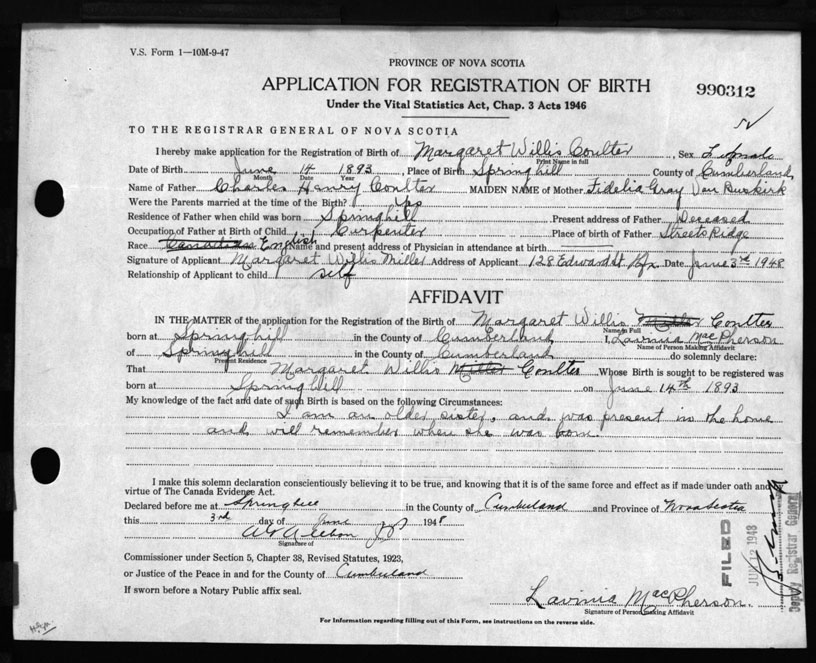 V.S. Form 1—10M-9-47
PROVINCE OF NOVA SCOTIA
APPLICATION FOR REGISTRATION OF BIRTH
990312
Under the Vital Statistics Act, Chap. 3 Acts 1946
TO THE REGISTRAR GENERAL OF NOVA SCOTIA
I hereby make application for the Registration of Birth of Margaret Willis Coulter, Sex Female
Print Name in full
Date of Birth June 14 1893, Place of Birth Springhill County of Cumberland
Month Date Year
Name of Father Charles Henry Coulter MAIDEN NAME of Mother Fidelia Gray Van Buskirk
Were the Parents married at the time of the Birth? yes
Residence of Father when child was born Springhill Present address of Father Deceased
Occupation of Father at Birth of Child Carpenter Place of birth of Father Streets Ridge
Race Canadian English Name and present address of Physician in attendance at birth
Signature of Applicant Margaret Willis Miller Address of Applicant 128 Edward St. Hfx. Date June 3rd 1948
Relationship of Applicant to child self
AFFIDAVIT
IN THE MATTER of the application for the Registration of the Birth of Margaret Willis Miller Coulter
Name in Full
born at Springhill in the County of Cumberland I, Lavinia MacPherson
Name of Person Making Affidavit
of Springhill in the County of Cumberland do solemnly declare:
Present Residence
That Margaret Willis Miller Coulter Whose Birth is sought to be registered was
born at Springhill on June 14th 1893
My knowledge of the fact and date of such Birth is based on the following Circumstances:
I am an older sister, and was present in the home
and well remember when she was born.
I make this solemn declaration conscientiously believing it to be true, and knowing that it is of the same force and effect as if made under oath and by
virtue of The Canada Evidence Act.
Declared before me at Springhill in the County of Cumberland and Province of Nova Scotia
this 3rd day of June 1948
Signature of
Commissioner under Section 5, Chapter 38, Revised Statutes, 1923,
or Justice of the Peace in and for the County of Cumberland
If sworn before a Notary Public affix seal.
Lavinia MacPherson.
Signature of Person making Affidavit
For Information regarding filling out of this Form, see instructions on the reverse side.
FILED
1948
Deputy Registrar General